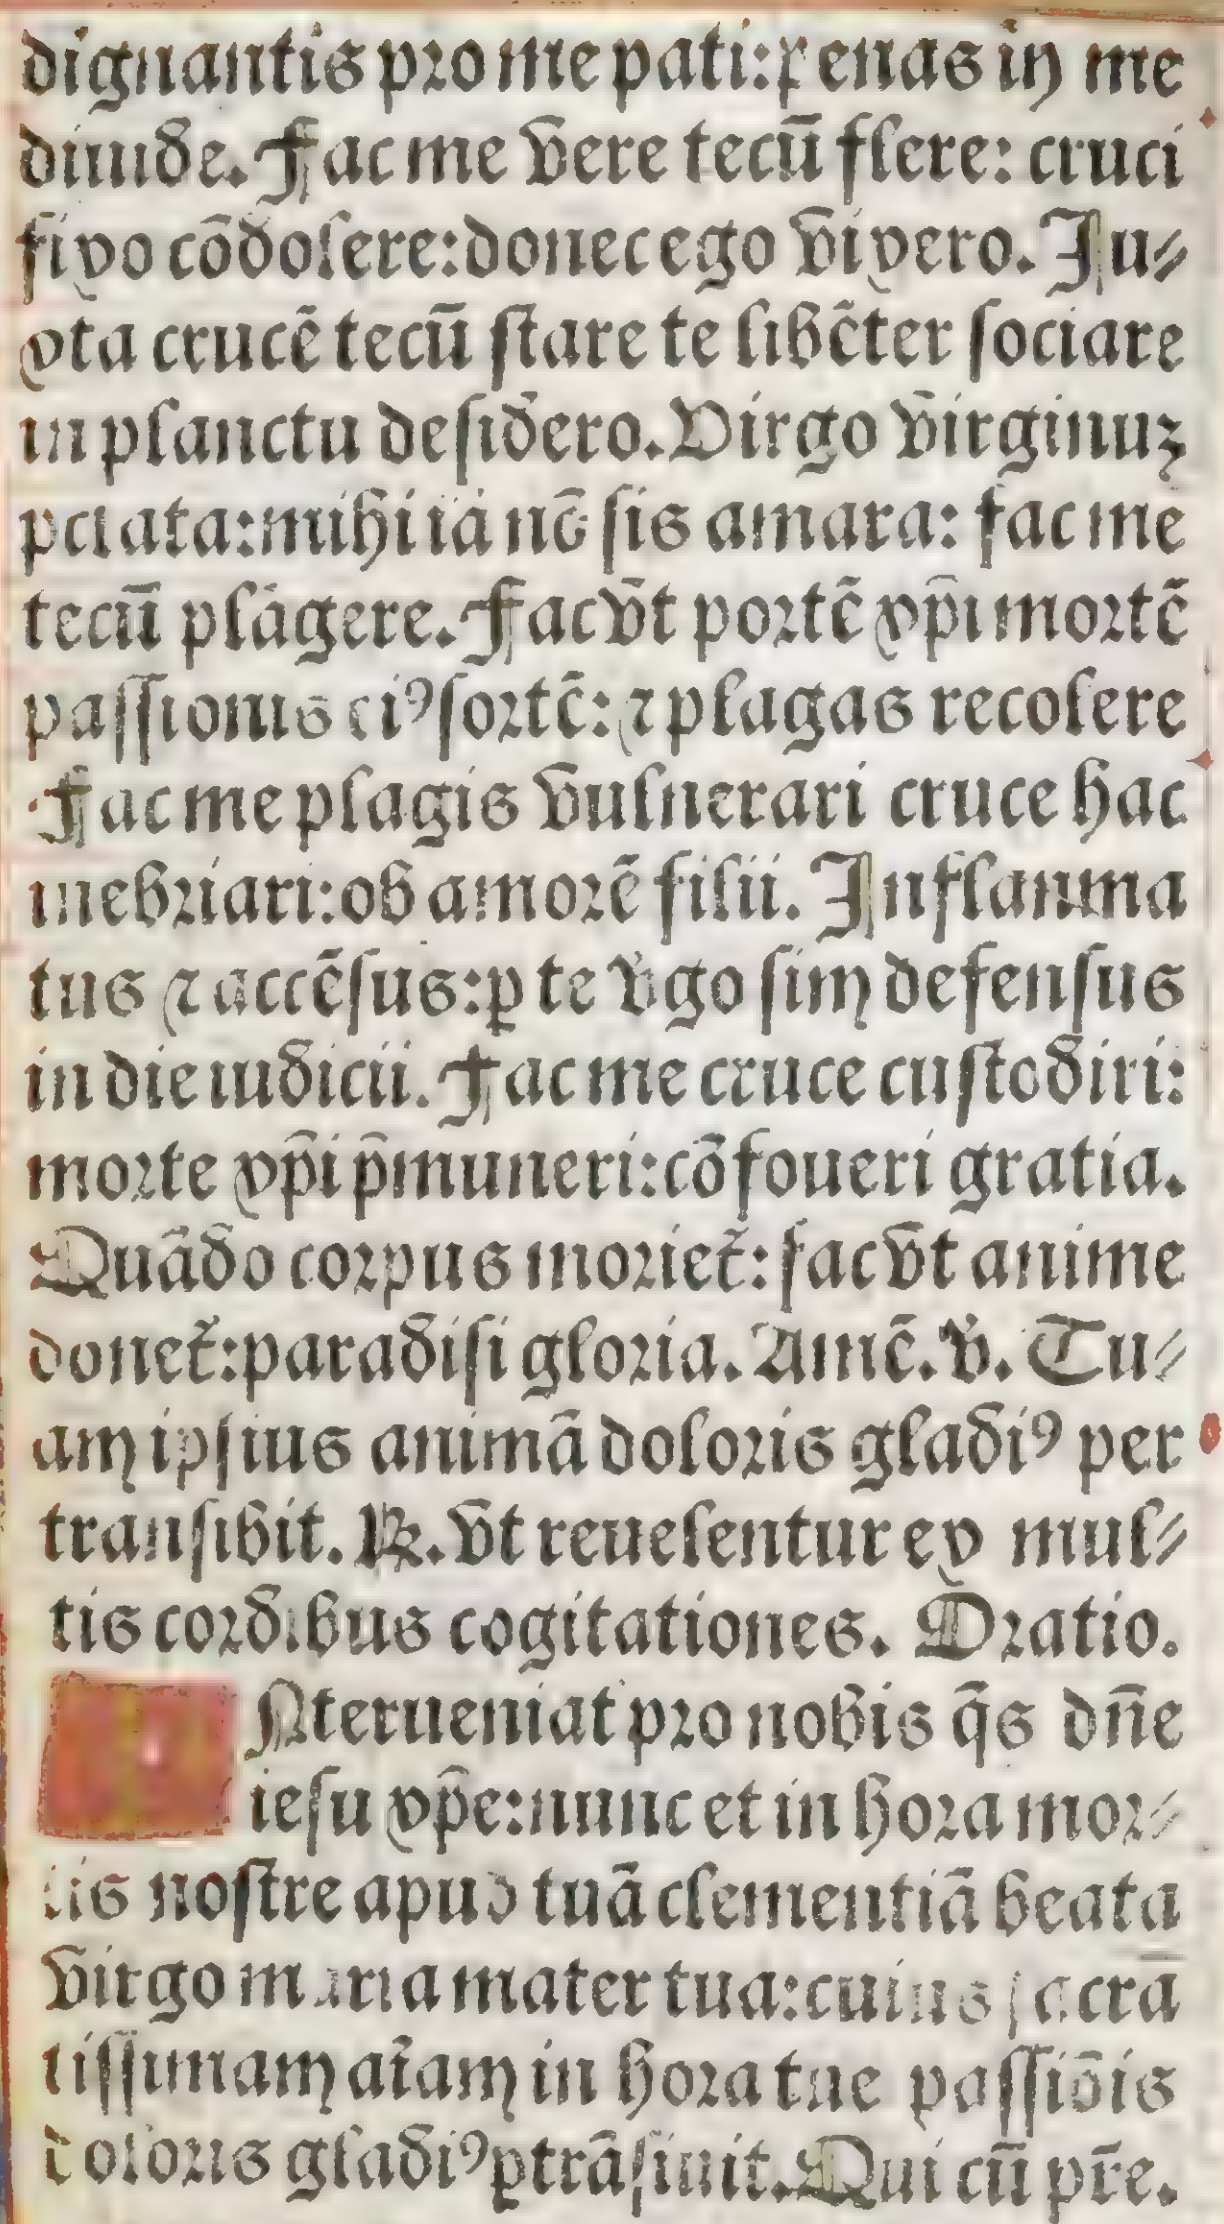 dignantis pro me pati: penas in me
diuide. Fac me vere tecū flere: cruci
fixo cōdolere: donec ego vixero. Ju⸗
xta crucē tecū stare te libēter sociare
in planctu desidero. Virgo virginuꝫ
pclara: mihi iā nō sis amara: fac me
tecū plāgere. Fac vt portē xp̄i mortē
passionis eiꝰ sortē: ⁊ plagas recolere
Fac me plagis vulnerari cruce hac
inebriari: ob amorē filii. Inflamma
tus ⁊ accēsus: ꝑ te v̓go sim defensus
in die iudicii. Fac me cruce custodiri:
morte xp̄i p̄muneri: cōfoueri gratia.
Quādo corpus moriet᷑: fac vt anime
donet᷑: paradisi gloria. Amē. V̓. Tu⸗
am ipsius animā doloris gladiꝰ per
transibit. ℞. Vt reuelentur ex mul⸗
tis cordibus cogitationes. Oratio.
Nterueniat pro nobis q̄s dn̄e
iesu xp̄e: nunc et in hora mor⸗
tis nostre apud tuā clementiā beata
virgo maria mater tua: cuius sacra
tissimam aīam in hora tue passiōis
doloris gladiꝰ ꝑtrāsiuit. Qui cū pr̄e.